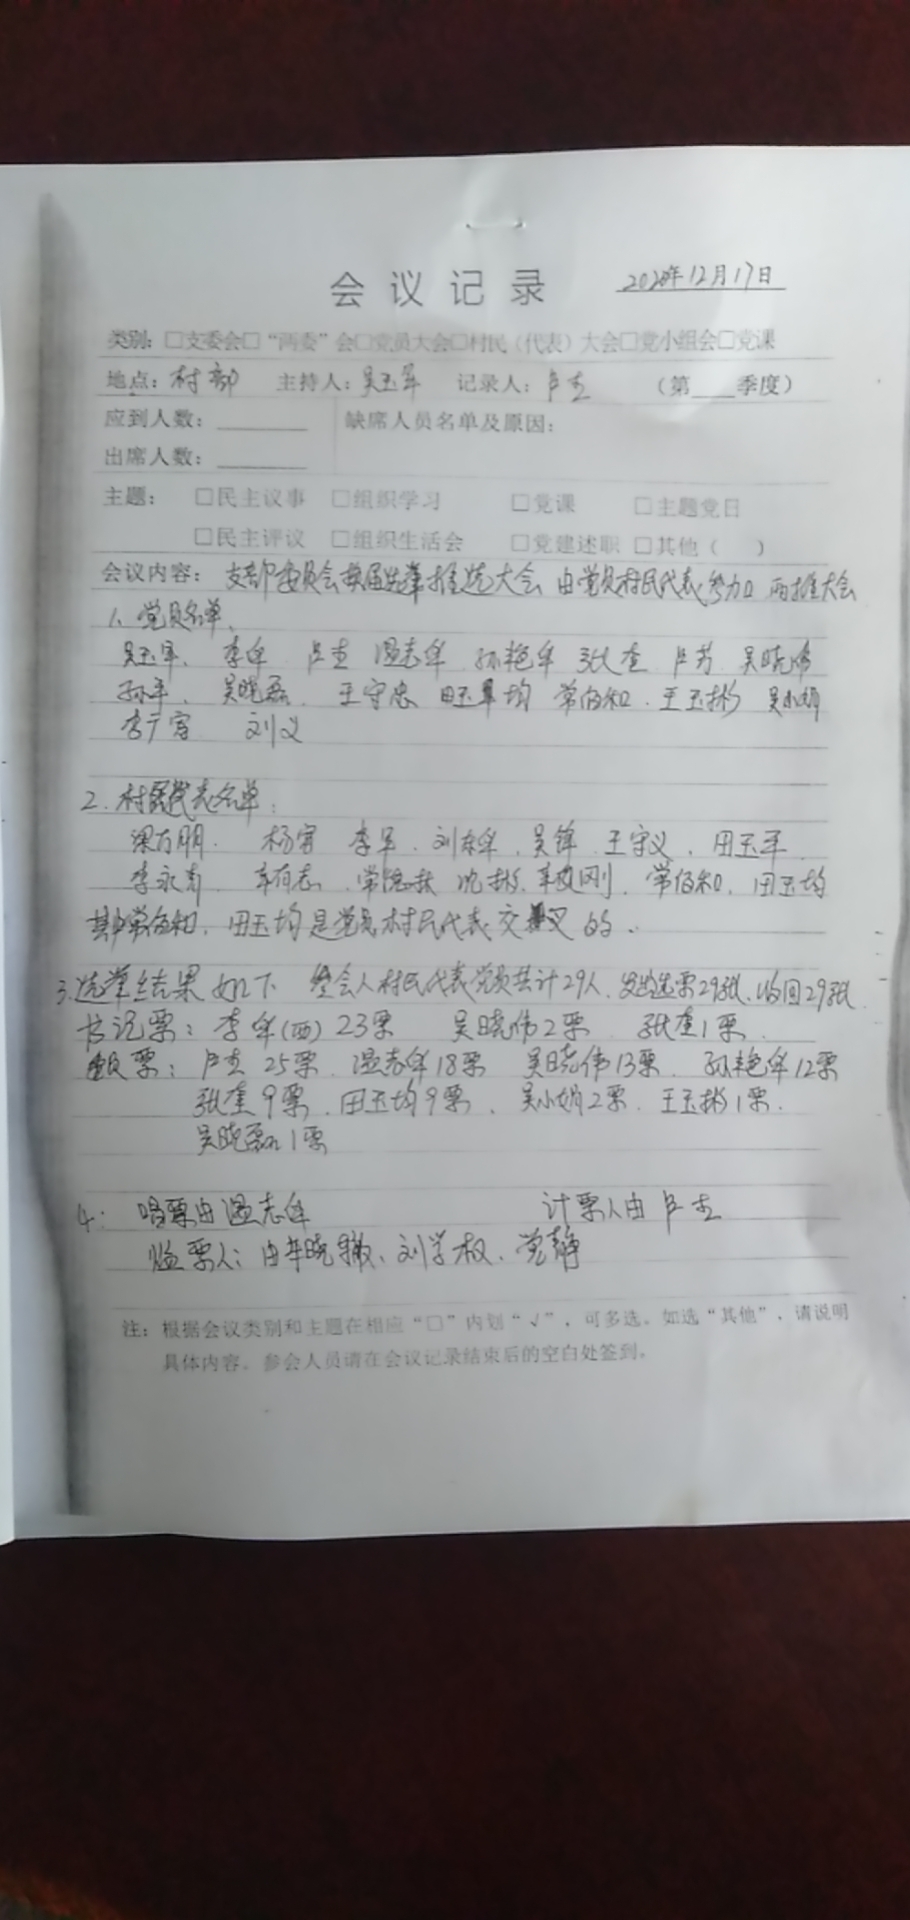 会议记录 2020年12月17日
类别：□支委会□“两委”会□党员大会□村民（代表）大会□党小组会□党课
地点：村部 主持人：吴玉军 记录人：卢杰 （第____季度）
应到人数：________ 缺席人员名单及原因：
出席人数：________
主题： □民主议事 □组织学习 □党课 □主题党日
□民主评议 □组织生活会 □党建述职 □其他（ ）
会议内容：支部委员会换届选举推选大会 由党员村民代表参加 两推大会
1、党员名单、
吴玉军、 李年 卢杰 温志年 孙艳年 张奎 卢芳 吴晓伟
孙军、 吴晓磊 王守忠 田玉均 常伯和、王玉彬 吴小娟
李广富 刘义
2.村民代表名单：
梁万朋. 杨富 李军. 刘东年. 吴锋. 王守义、田玉军
李永 有志、常 沈彬、 刚、常伯和、田玉均
其中常伯和、田玉均是党员村民代表交叉的.
3.选举结果如下 参会人村民代表党员共计29人、发出选票29张、收回29张
书记票：李年(西)23票 吴晓伟2票 张奎1票.
委员票：卢杰25票、温志年18票 吴晓伟13票、孙艳年12票
张奎9票、田玉均9票、吴小娟2票、王玉彬1票.
吴晓磊1票
4. 唱票由温志年 计票人由卢杰
监票人：由 晓 、刘学权、党静
注：根据会议类别和主题在相应“□”内划“√”，可多选。如选“其他”，请说明
具体内容。参会人员请在会议记录结束后的空白处签到。